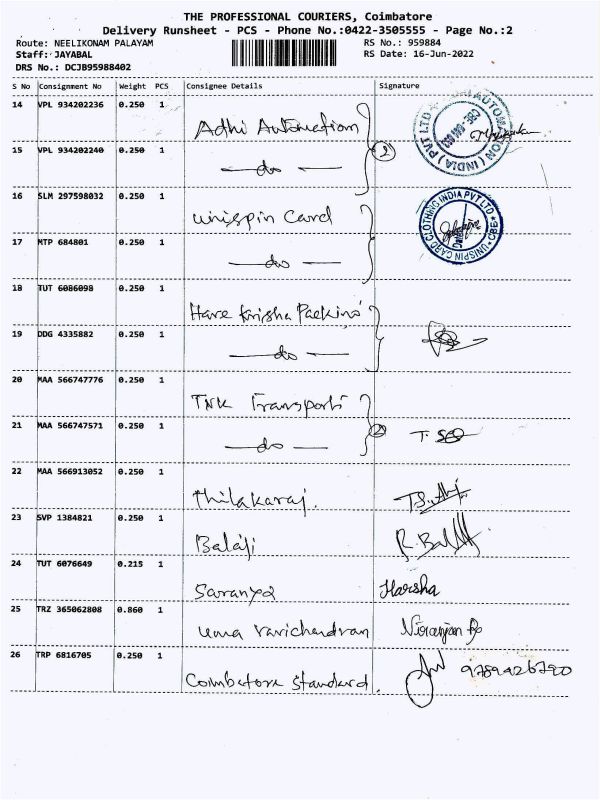 THE PROFESSIONAL COURIERS, Coimbatore
Delivery Runsheet - PCS - Phone No.:0422-3505555 - Page No.:2
Route: NEELIKONAM PALAYAM RS No.: 959884
Staff: JAYABAL RS Date: 16-Jun-2022
DRS No.: DCJB95988402
S No Consignment No Weight PCS Consignee Details Signature
14 VPL 934202236 0.250 1 Adhi Automation
15 VPL 934202240 0.250 1 do 2
16 SLM 297598032 0.250 1 Unispin Card
UNISPIN CARD CLOTHING INDIA PVT LTD * CBE *
17 MTP 684801 0.250 1 do
18 TUT 6086098 0.250 1 Hare Krisha Packing
19 DDG 4335882 0.250 1 do
20 MAA 566747776 0.250 1 TNK Transports
21 MAA 566747571 0.250 1 do 2
22 MAA 566913052 0.250 1 Thilakaraj.
23 SVP 1384821 0.250 1 Balaji R. Balaji
24 TUT 6076649 0.215 1 Saranya Harsha
25 TRZ 365062808 0.860 1 uma ravichandran Niranjan
26 TRP 6816705 0.250 1 Coimbatore Standard.